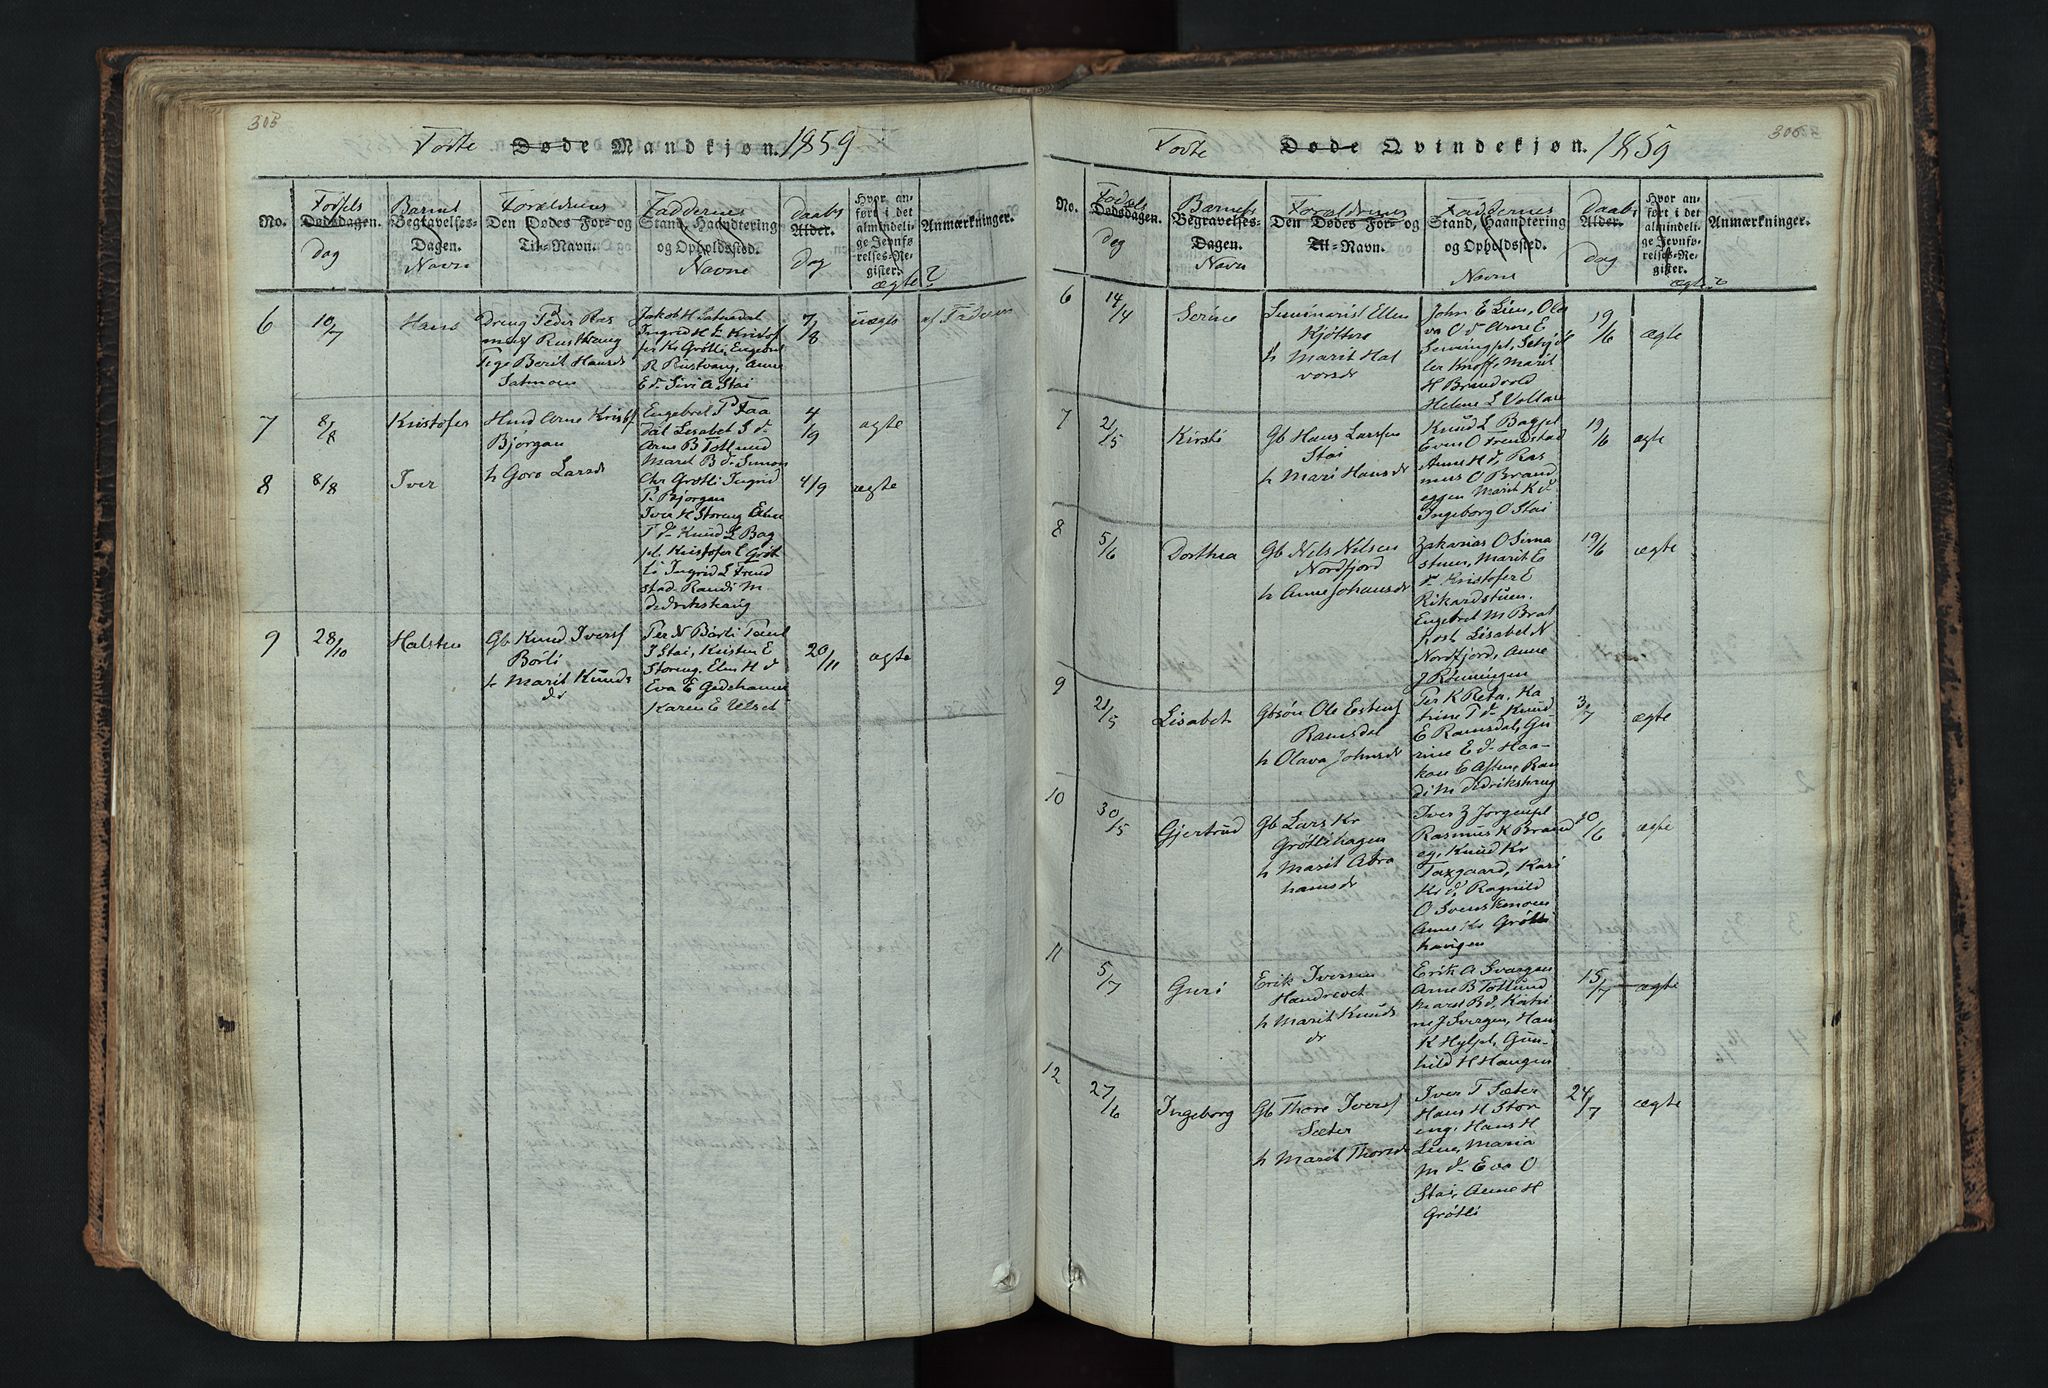 305
Føste Døde Mandkjøn. 1859
No.
Føsels
Dødsdagen.
dag
Barnets
Begravelses-
Dagen.
Navn
Forældrenes
Den Dødes For- og
Til-Navn.
Faddernes
Stand, Haandtering
og Opholdssted.
Navne
Daabs
Alder.
dag
Hvor an-
ført i det
almindeli-
ge Jevnfø-
relses-Re-
gister.
ægte?
Anmærkninger.
6
10/7
Hans
Dreng Peder Ras
mus
Pige Berit Hansdr
Jakob H
Ingrid H
fer Kr Grøtli, Engebret
R Rustvang, Anne
E dr Sivi A Stai
7/8
uægte
af Faderen
7
8/8
Kristofer
Husmd Arne Kristof
Bjørgan
h Goro Larsdr
Engebret P Faa
dal Lisabet S dr
Arne B Totlund
Maret B dr Simon
4/9
ægte
8
8/8
Iver
Chr Grøtli Ingrid
P. Bjørgan
Iver H Storeng Eline
T dr Knud L Bag
pl. Kristofer E Grøt
li Ingrid L Trend
stad Randi M
didrikshaug
4/9
ægte
9
28/10
Halsten
Gb Knud Iversf
Börli
h Marit Knuds
dr
Per N Börli Tanst
J Stai, Kristen E
Storeng. Elen H d
Eva E Gjedehamer
Karen E Ulset
20/11
ægte
306
Føste Døde Qvindekjøn. 1859
No.
Fødsels
Dødsdagen.
dag
Barnets
Begravelses-
Dagen.
Navn
Forældrenes
Den Dødes For- og
Til-Navn.
Faddernes
Stand, Haandtering
og Opholdssted.
Navne
Daabs
Alder.
dag
Hvor an-
ført i det
almindeli-
ge Jevnfø-
relses-Re-
gister.
ægte?
Anmærkninger.
6
14/4
Serine
Seminarist Ellen
Kjøtterø
h Marit Hal
vorsdr
John E Lien, Ola
va O dr Arne E
Semingpl, Schjöt
ler Knoff, Marit
H Brandvold
Helene L Vollan
19/6
ægte
7
2/5
Kirsti
Gb Hans Larssen
Stai
h Mari Hansdr
Knud L Bagpl
Even O Trendstad
Anne H dr, Ras
mus O Brand
eggen Marit K dr
Ingeborg O Stai
19/6
ægte
8
5/6
Dorthea
Gb Nels Nelsen
Nordfjord
h Anne Johansdr
Zakarias O Sima
stuen, Marit E
dr Kristofer E
Rikardstuen.
Engebret M Brat
høst Lisabet N
Nordfjord, Anne
J Rönningen
19/6
ægte
9
21/5
Lisabet
Gbsøn Ole Estensf
Ramsdal
h Olava Johnsdr
Per K Reta, Ka
trine P dr Knud
E Ramsdal, Gu
rine E dr Haa-
kon E Asten, Ran
di M didrikshaug
3/7
ægte
10
30/5
Gjertrud
Gb Lars Kr
Grøtlihagen
h Marit Abra
hamsdr
Iver Z Jørgenpl
Rasmus K Brand
eg, Knud Kr
Taxgaard, Kari
Kr d, Ragnild
O Svenskmoen
Anne Kr Grötli
havigen
30/6
ægte
11
5/7
Guri
Erik Iversen
Haudrevet
h Marit Knuds
dr
Erik A Svargen
Arne B Totlund
Maret B dr Katri
ne J Svergen, Hans
K Hylpl, Gun-
hild H Haugen
15/7
ægte
12
27/6
Ingeborg
Gb Thore Iversf
Sæter
h Marit Thorsdr
Iver T Sæter
Hans H Stor
eng, Hans H
Lien, Maria
M dr Eva O
Stai, Anne H
Grötli
24/7
ægte